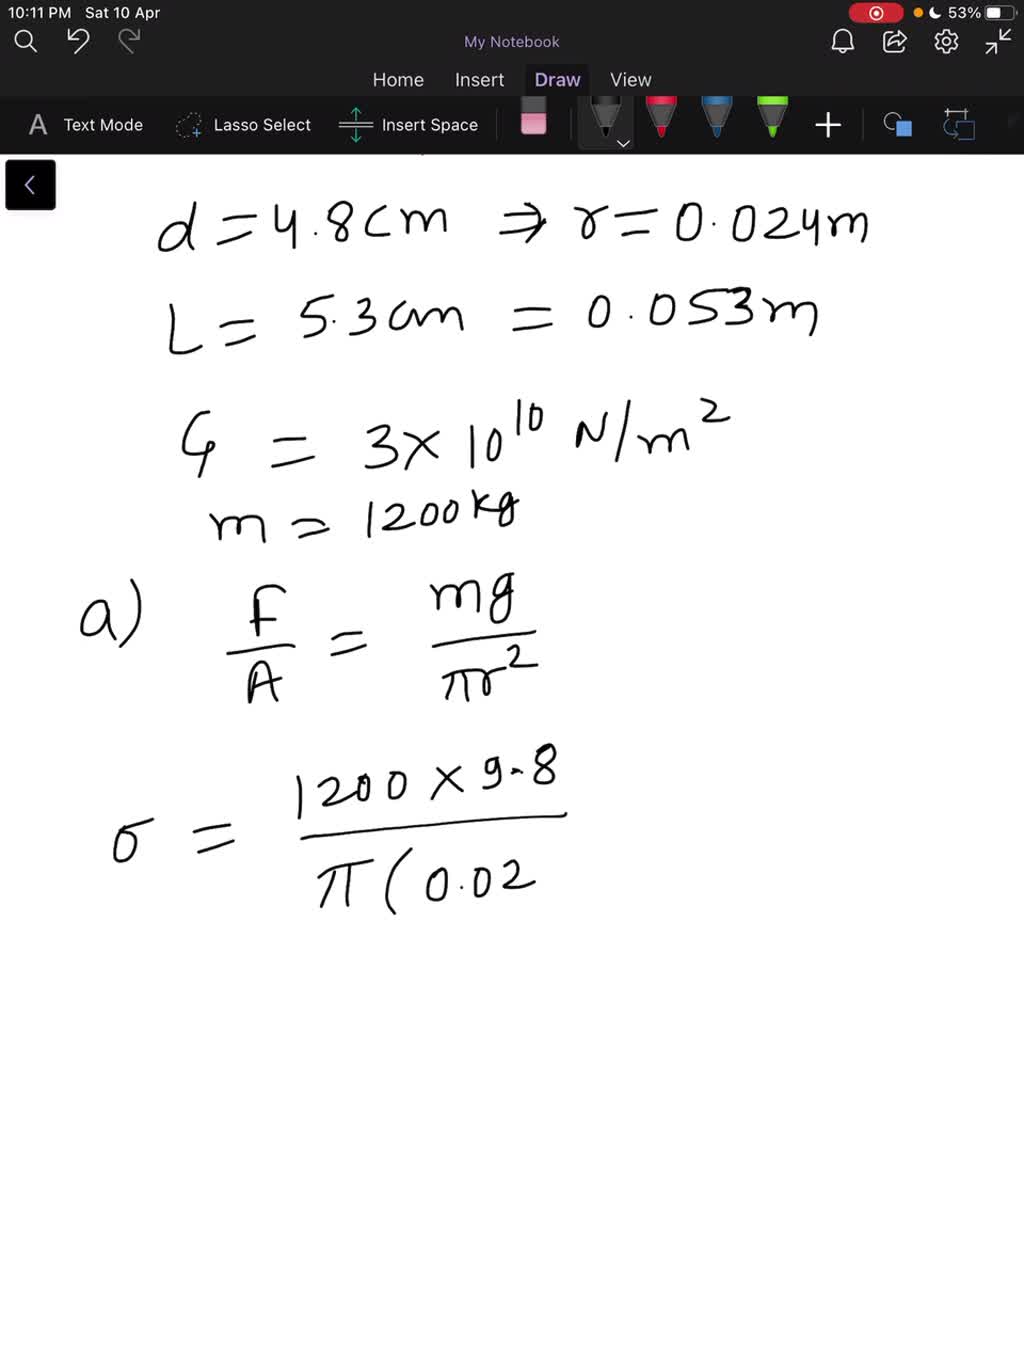 10:11 PM Sat 10 Apr 53%
My Notebook
Home Insert Draw View
A Text Mode Lasso Select Insert Space
d = 4.8cm ⇒ r = 0.024m
L = 5.3cm = 0.053m
G = 3×10^10 N/m^2
m = 1200kg
a) F/A = mg/πr^2
σ = 1200 × 9.8/π(0.02